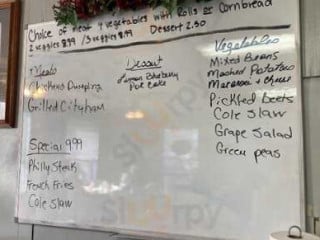 Choice of meat 4 vegetables with Rolls or Cornbread
2 veggies 8.99 / 3 veggies 9.99 Dessert 2.50
Meats
Chicken & Dumpling
Grilled City ham
Special 9.99
Philly Steak
French Fries
Cole slaw
Dessert
Lemon Blueberry
Poke Cake
Vegetables
Mixed Beans
Mashed Potatoes
Macaroni + Cheese
Pickled Beets
Cole Slaw
Grape Salad
Green peas
sirppy